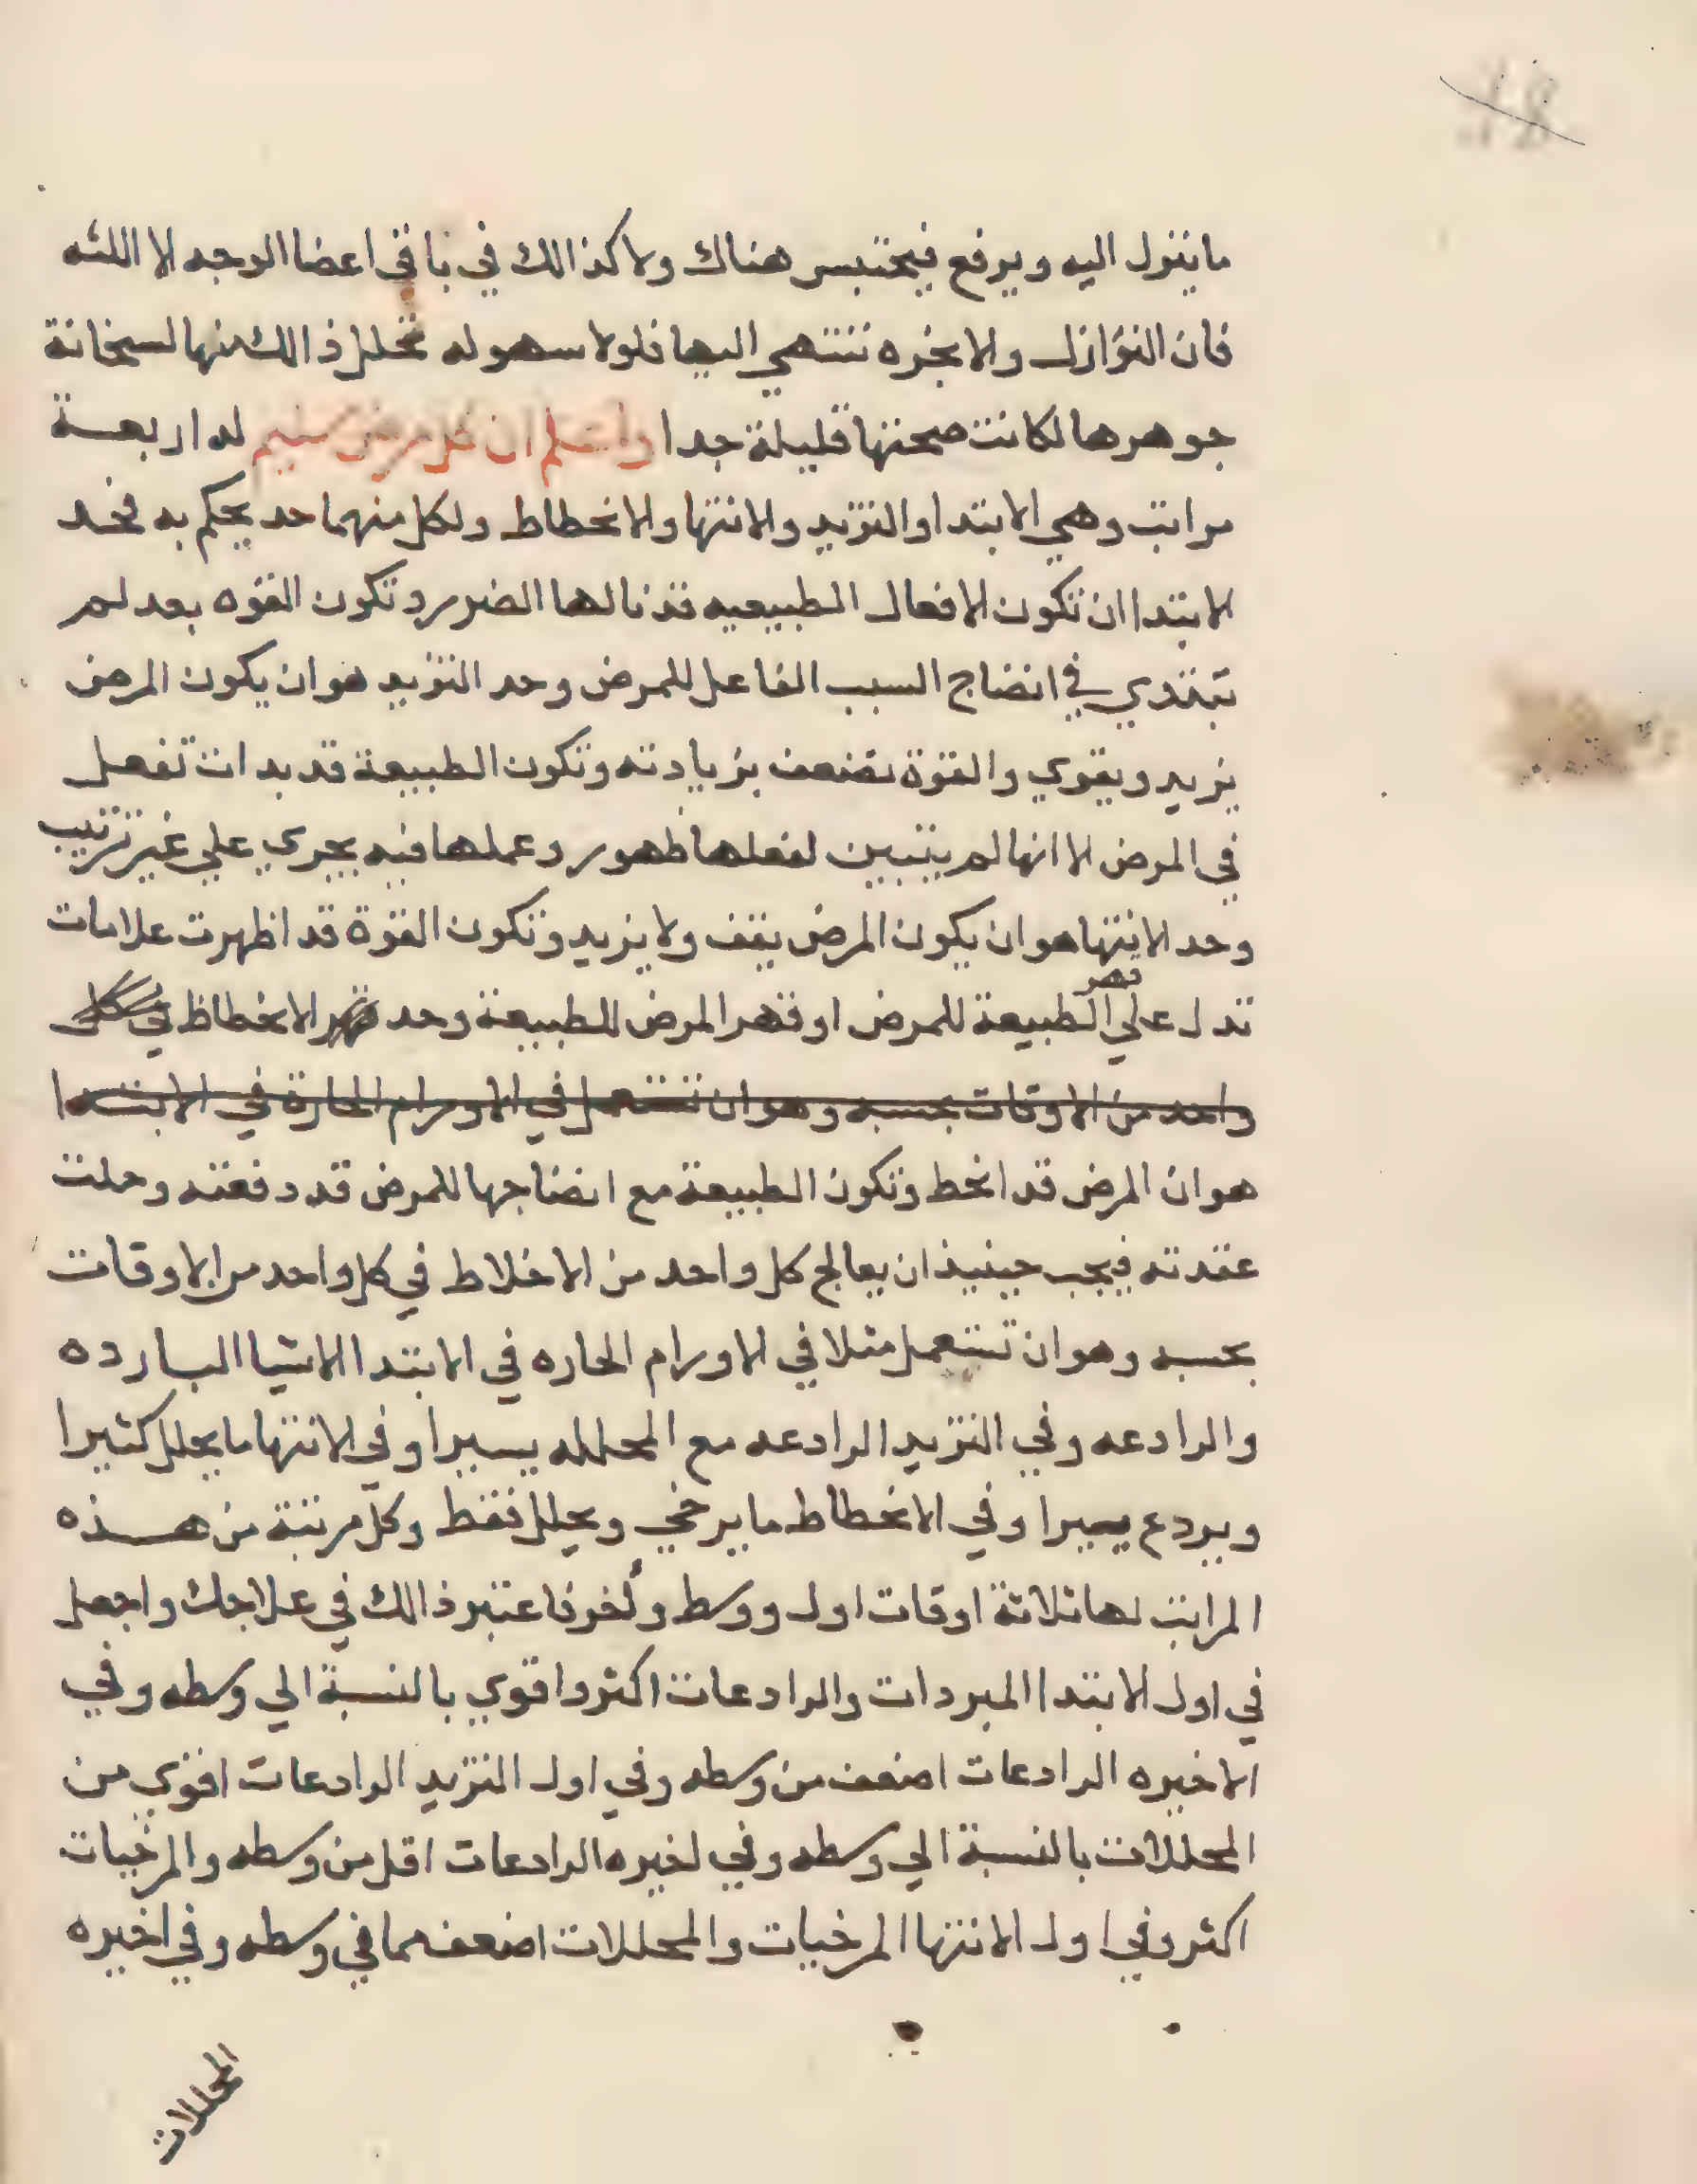 ما ينزل اليه ويرفع فيحتبس هناك ولا كذالك في باقي اعضا الوجه لا اللثه
فان النوازل والابخره تنتهي اليها فلولا سهوله تحلل ذالك منها لسخانة
جوهرها لكانت صحتها قليلة جدا واعلم ان كل مرض سليم له اربعة
مراتب وهي الابتدا والتزيد والانتها والانحطاط ولكل منهما حد يحكم به فحد
الابتدا ان تكون الافعال الطبيعيه قد نالها الضرر وتكون القوه بعد لم
تبتدي في انضاج السبب الفاعل للمرض وحد التزيد هو ان يكون المرض
يزيد ويقوي والقوة تضعف بزيادته وتكون الطبيعة قد بدات تفعل
في المرض الا انها لم يتبين لفعلها ظهور وعملها فيه يجري علي غير ترتيب
وحد الانتها هو ان يكون المرض يقف ولا يزيد وتكون القوة قد اظهرت علامات
تدل علي قهر الطبيعة للمرض او قهر المرض للطبيعة وحد الانحطاط في كل
واحد من الاوقات بحسبه وهو ان تستعمل في الاورام الحارة في الابتدا
هو ان المرض قد انحط وتكون الطبيعة مع انضاجها للمرض قد دفعته وحلت
عقدته فيجب حينيذ ان يعالج كل واحد من الاخلاط في كل واحد من الاوقات
بحسبه وهو ان تستعمل مثلا في الاورام الحاره في الابتدا الاشيا البارده
والرادعه وفي التزيد الرادعه مع المحلله يسيرا وفي الانتها ما يحلل كثيرا
ويردع يسيرا وفي الانحطاط ما يرخي ويحلل فقط وكل مرتبة من هذه
المراتب لها ثلاثة اوقات اول ووسط وأخر فاعتبر ذالك في علاجك واجعل
في اول الابتدا المبردات والرادعات اكثر واقوي بالنسبة الي وسطه وفي
الاخيره الرادعات اضعف من وسطه وفي اول التزيد الرادعات اقوي من
المحللات بالنسبة الي وسطه وفي اخيره الرادعات اقل من وسطه والمرخيات
اكثر وفي اول الانتها المرخيات والمحللات اضعف مما في وسطه وفي اخيره
المحللات